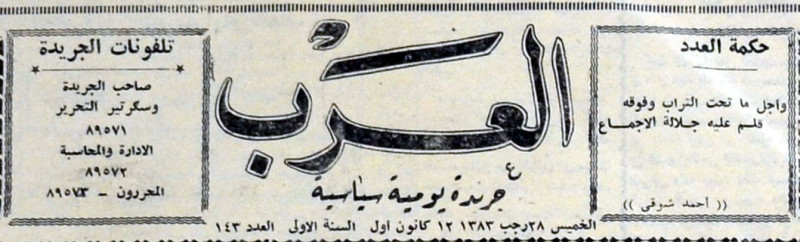 حكمة العدد
واجل ما تحت التراب وفوقه
قلم عليه جلالة الاجماع
(( أحمد شوقي ))
العرب
جريدة يومية سياسية
الخميس ٢٨ رجب ١٣٨٣ ١٢ كانون اول السنة الاولى العدد ١٤٣
تلفونات الجريدة
صاحب الجريدة
وسكرتير التحرير
٨٩٥٧١
الادارة والمحاسبة
٨٩٥٧٢
المحررون - ٨٩٥٧٣